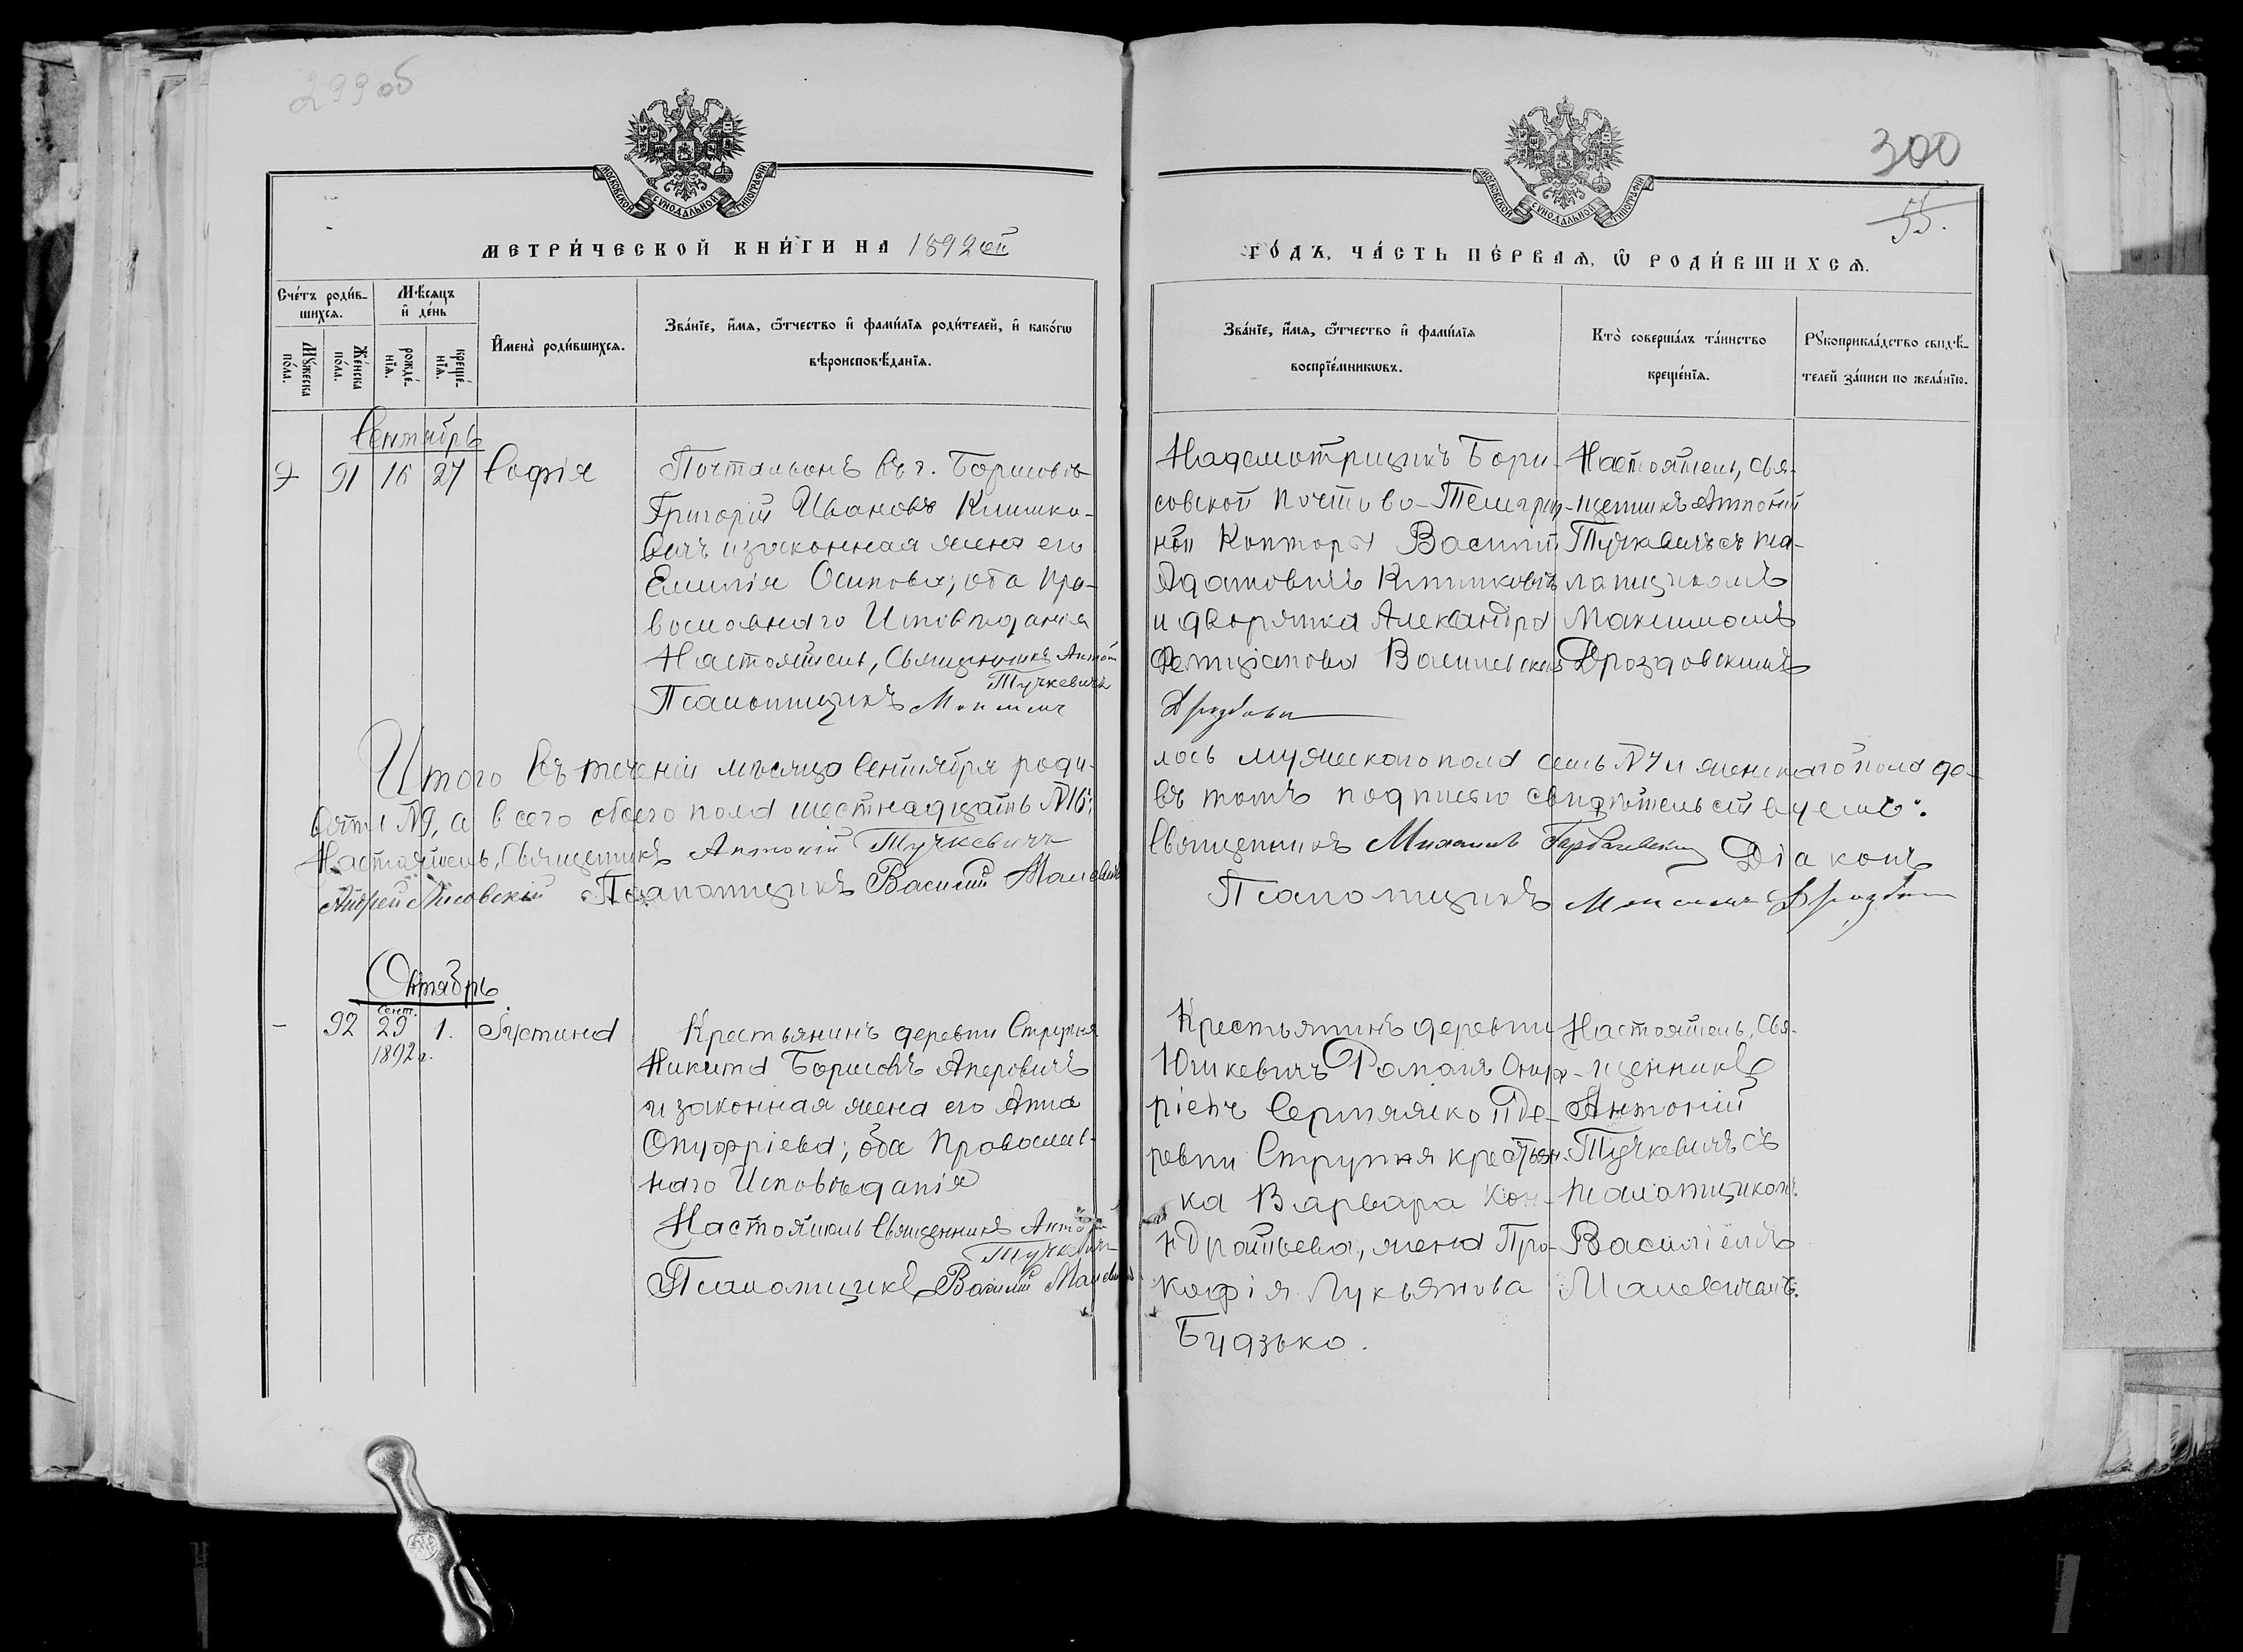 299 об
МОСКОВСКОЙ СѴНОДАЛЬНОЙ ТИПОГРАФІИ
МЕТРИ́ЧЕСКОЙ КНИ́ГИ НА 1892ой
Сче́тъ роди́в-
шихсѧ.
Мꙋ́жеска
по́ла.
Же́нска
по́ла.
Мѣ́сѧцъ
и҆ де́нь
рожде́-
нїѧ.
креще́-
нїѧ.
И҆мена̀ роди́вшихсѧ.
Зва́нїе, и҆́мѧ, ѻ҆́тчество и҆ фами́лїѧ роди́телей, и҆ како́гѡ
вѣроисповѣ́данїѧ.
Сентябрь
91 16 27 Софія
Почтальонъ въ г. Борисовѣ
Григорій Ивановъ Климко-
вичъ и законная жена его
Емилія Осипова; оба Пра-
вославнаго Исповѣданія
Настоятель, Священникъ Антоній
Тучкевичъ
Псаломщикъ Максимъ
Итого въ теченіи мѣсяца Сентября роди-
вять №9, а всего обоего пола шестнадцать №16;
Настоятель, Священникъ Антоній Тучкевичъ
Андрей Лисовскій Псаломщикъ Василій Малевичъ
Октябрь
- 92 Сент. 29 1. Іустина
1892 г.
Крестьянинъ деревни Струпня
Никита Борисовъ Аперовичъ
и законная жена его Анна
Онуфріева; оба Православ-
наго Исповѣданія
Настоятель Священникъ Антоній
Тучкевичъ
Псаломщикъ Василій Малевичъ
300
55.
МОСКОВСКОЙ СѴНОДАЛЬНОЙ ТИПОГРАФІИ
ГО́ДЪ, ЧА́СТЬ ПЕ́РВАѦ, Ѽ РОДИ́ВШИХСѦ.
Зва́нїе, и҆́мѧ, ѻ҆́тчество и҆ фами́лїѧ
воспрїе́мникѡвъ.
Кто̀ соверша́лъ та́инство
креще́нїѧ.
Рꙋкоприкла́дство свидѣ́-
телей за́писи по жела́нїю.
Надсмотрщикъ Бори-
совской Почтово-Телеграф-
ной Конторы Василій
Адамовичъ Климковичъ
и дворянка Александра
Фелиціанова Васильевская
Дроздовскій
Настоятель, Свя-
щенникъ Антоній
Тучкевичъ съ пса-
ломщикомъ
Максимомъ
Дроздовскимъ
лось мужескаго пола семь №7 и женскаго пола де-
въ томъ подписью свидѣтельствуемъ:
Священникъ Михаилъ Діаконъ
Псаломщикъ Максимъ Дроздовскій
Крестьянинъ деревни
Юшкевичъ Романъ Онуф-
ріевъ Сермяжко и де-
ревни Струпня крестьян-
ка Варвара Кон-
дратьева, жена Про-
кофія Лукьянова
Будзько.
Настоятель, Свя-
щенникъ
Антоній
Тучкевичъ съ
псаломщикомъ
Василіемъ
Малевичемъ.